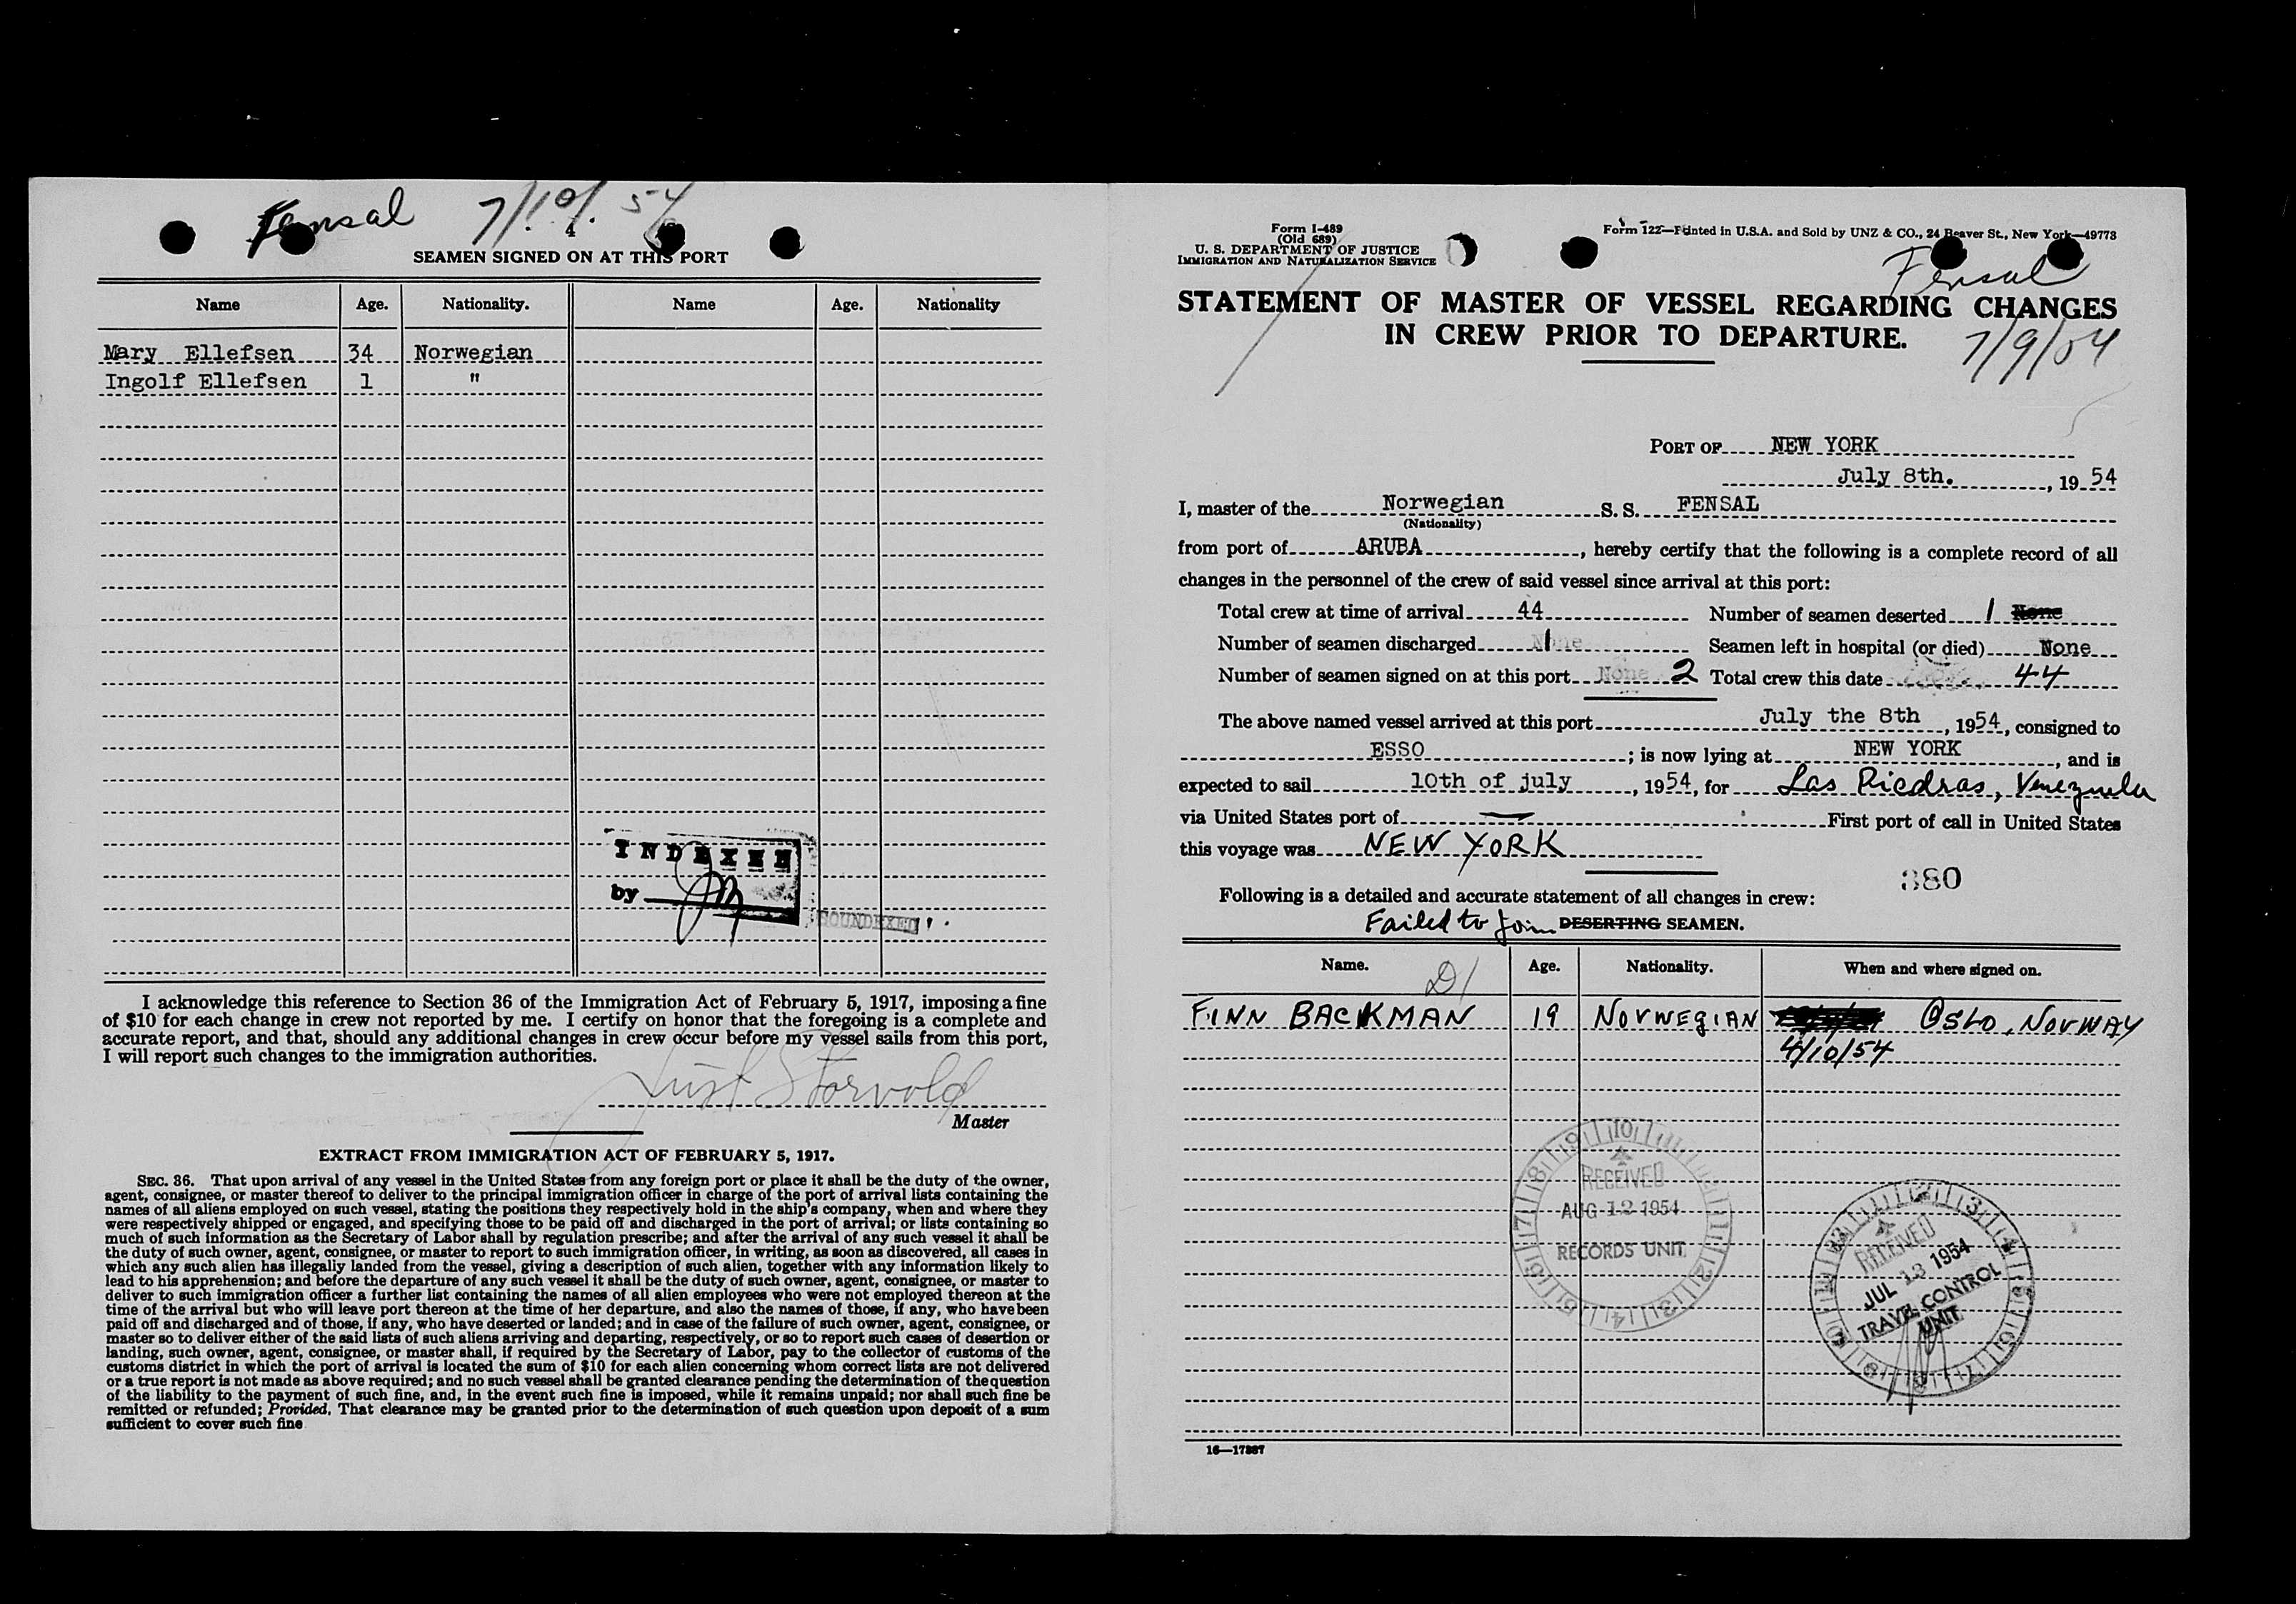 Fensal 7/10/54
4
SEAMEN SIGNED ON AT THIS PORT
Name Age. Nationality. Name Age. Nationality
Mary Ellefsen 34 Norwegian
Ingolf Ellefsen 1 "
INDEXED
by
SOUNDEXED
I acknowledge this reference to Section 36 of the Immigration Act of February 5, 1917, imposing a fine
of $10 for each change in crew not reported by me. I certify on honor that the foregoing is a complete and
accurate report, and that, should any additional changes in crew occur before my vessel sails from this port,
I will report such changes to the immigration authorities.
Just Storvold
Master
EXTRACT FROM IMMIGRATION ACT OF FEBRUARY 5, 1917.
SEC. 36. That upon arrival of any vessel in the United States from any foreign port or place it shall be the duty of the owner,
agent, consignee, or master thereof to deliver to the principal immigration officer in charge of the port of arrival lists containing the
names of all aliens employed on such vessel, stating the positions they respectively hold in the ship's company, when and where they
were respectively shipped or engaged, and specifying those to be paid off and discharged in the port of arrival; or lists containing so
much of such information as the Secretary of Labor shall by regulation prescribe; and after the arrival of any such vessel it shall be
the duty of such owner, agent, consignee, or master to report to such immigration officer, in writing, as soon as discovered, all cases in
which any such alien has illegally landed from the vessel, giving a description of such alien, together with any information likely to
lead to his apprehension; and before the departure of any such vessel it shall be the duty of such owner, agent, consignee, or master to
deliver to such immigration officer a further list containing the names of all alien employees who were not employed thereon at the
time of the arrival but who will leave port thereon at the time of her departure, and also the names of those, if any, who have been
paid off and discharged and of those, if any, who have deserted or landed; and in case of the failure of such owner, agent, consignee, or
master so to deliver either of the said lists of such aliens arriving and departing, respectively, or so to report such cases of desertion or
landing, such owner, agent, consignee, or master shall, if required by the Secretary of Labor, pay to the collector of customs of the
customs district in which the port of arrival is located the sum of $10 for each alien concerning whom correct lists are not delivered
or a true report is not made as above required; and no such vessel shall be granted clearance pending the determination of the question
of the liability to the payment of such fine, and, in the event such fine is imposed, while it remains unpaid; nor shall such fine be
remitted or refunded; Provided, That clearance may be granted prior to the determination of such question upon deposit of a sum
sufficient to cover such fine
Form I-489
(Old 689)
U. S. DEPARTMENT OF JUSTICE
IMMIGRATION AND NATURALIZATION SERVICE
Form 122—Printed in U.S.A. and Sold by UNZ & CO., 24 Beaver St., New York—49773
Fensal
STATEMENT OF MASTER OF VESSEL REGARDING CHANGES
IN CREW PRIOR TO DEPARTURE.
7/9/54
PORT OF NEW YORK
July 8th. , 19 54
I, master of the Norwegian S. S. FENSAL
(Nationality)
from port of ARUBA , hereby certify that the following is a complete record of all
changes in the personnel of the crew of said vessel since arrival at this port:
Total crew at time of arrival 44 Number of seamen deserted 1 None
Number of seamen discharged None 1 Seamen left in hospital (or died) None
Number of seamen signed on at this port None 2 Total crew this date 44
The above named vessel arrived at this port July the 8th , 1954, consigned to
ESSO ; is now lying at NEW YORK , and is
expected to sail 10th of july , 1954, for Las Piedras, Venezuela
via United States port of — First port of call in United States
this voyage was NEW YORK
380
Following is a detailed and accurate statement of all changes in crew:
Failed to Join DESERTING SEAMEN.
Name. Age. Nationality. When and where signed on.
D/
FINN BACKMAN 19 NORWEGIAN OSLO, NORWAY
4/10/54
RECEIVED
AUG 12 1954
RECORDS UNIT
RECEIVED
JUL 13 1954
TRAVEL CONTROL
UNIT
16—17887